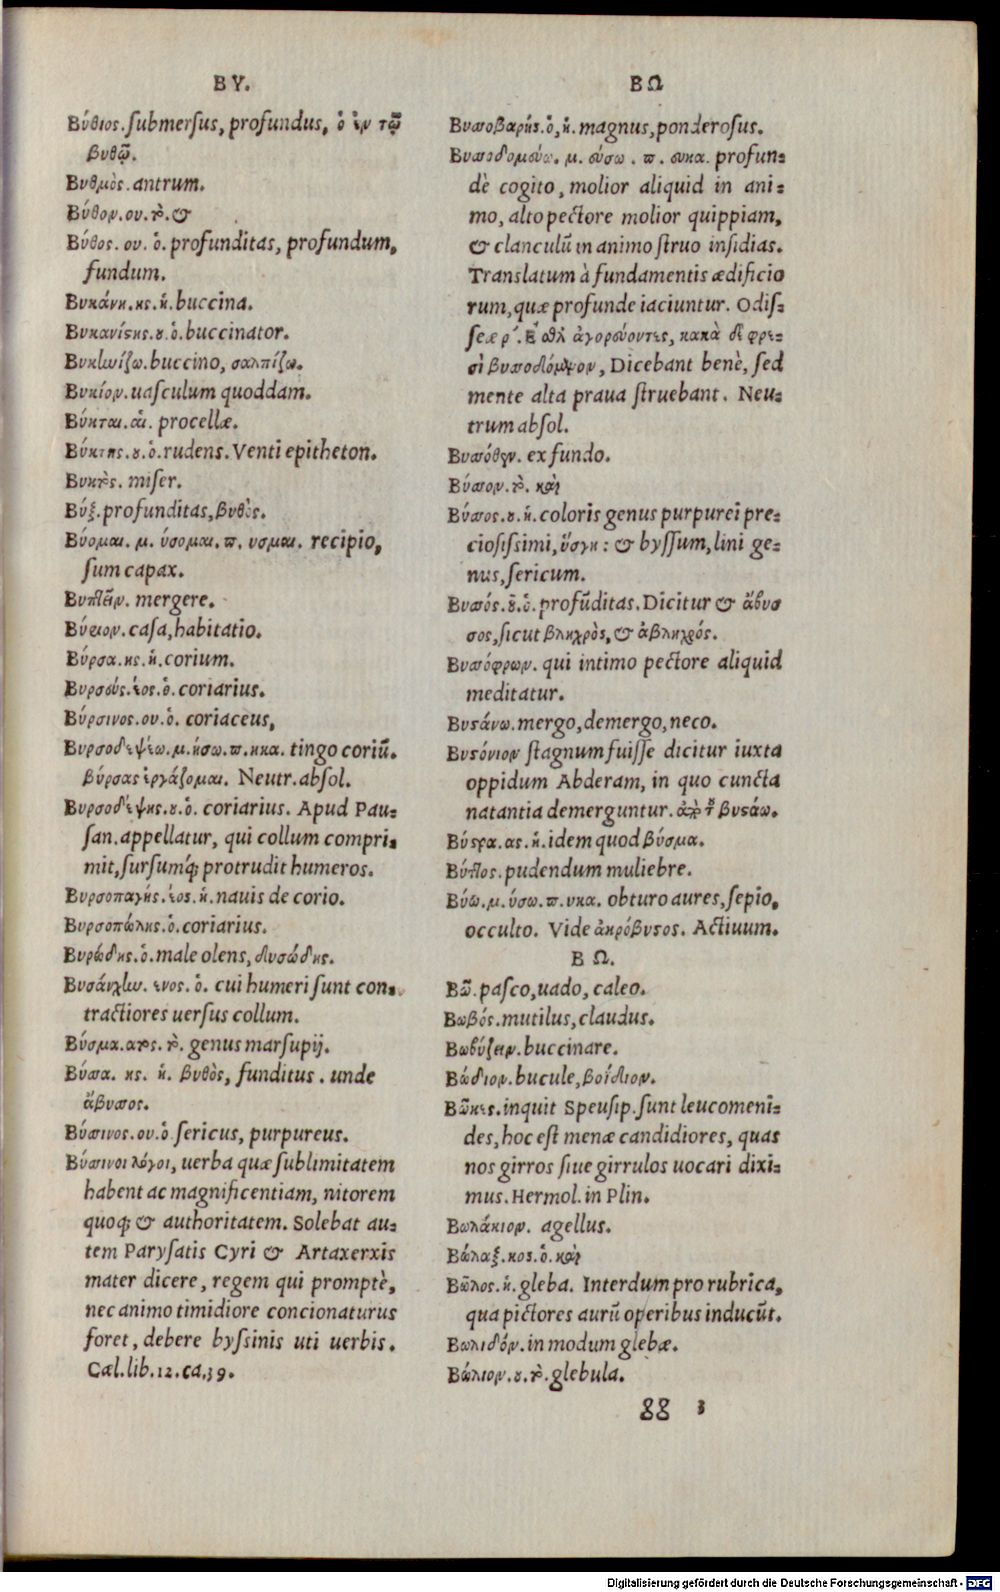 ΒΥ.
Βύθιος. submersus, profundus, ὁ ἐν τῷ
βυθῷ.
Βυθμὸς. antrum.
Βύθον. ου. τὸ. &
Βύθος. ου. ὁ. profunditas, profundum,
fundum.
Βυκάνη. ης. ἡ. buccina.
Βυκανίστης. ου. ὁ. buccinator.
Βυκηνίζω. buccino, σαλπίζω.
Βυκίον. uasculum quoddam.
Βύκται. αἱ. procellæ.
Βύκτης. ου. ὁ. rudens. Venti epitheton.
Βυκτὸς. miser.
Βύξ. profunditas, βυθὸς.
Βύομαι. μ. ύσομαι. π. υσμαι. recipio,
sum capax.
Βυπτεῖν. mergere.
Βύριον. casa, habitatio.
Βύρσα. ης. ἡ. corium.
Βυρσεύς. έος. ὁ. coriarius.
Βύρσινος. ου. ὁ. coriaceus,
Βυρσοδεψέω. μ. ήσω. π. ηκα. tingo coriũ.
βύρσας ἐργάζομαι. Neutr. absol.
Βυρσοδέψης. ου. ὁ. coriarius. Apud Pau=
san. appellatur, qui collum compri=
mit, sursumq́; protrudit humeros.
Βυρσοπαγής. έος. ἡ. nauis de corio.
Βυρσοπώλης. ὁ. coriarius.
Βυρώδης. ὁ. male olens, δυσώδης.
Βυσάυχην. ενος. ὁ. cui humeri sunt con=
tractiores uersus collum.
Βύσμα. ατος. τὸ. genus marsupij.
Βύσσα. ης. ἡ. βυθὸς, funditus. unde
ἄβυσσος.
Βύσσινος. ου. ὁ sericus, purpureus.
Βύσσινοι λόγοι, uerba quæ sublimitatem
habent ac magnificentiam, nitorem
quoq; & authoritatem. Solebat au=
tem Parysatis Cyri & Artaxerxis
mater dicere, regem qui promptè,
nec animo timidiore concionaturus
foret, debere byssinis uti uerbis.
Cæl. lib. 12. ca. 39.
ΒΩ
Βυσσοβαρής. ὁ, ἡ. magnus, ponderosus.
Βυσσοδομεύω. μ. εύσω. π. ευκα. profun=
dè cogito, molior aliquid in ani=
mo, alto pectore molior quippiam,
& clanculũ in animo struo insidias.
Translatum à fundamentis ædificio
rum, quæ profunde iaciuntur. Odis=
seæ ρ. Ἐσθλ ἀγορεύοντες, κακὰ δὲ φρε=
σὶ βυσσοδόμευον, Dicebant benè, sed
mente alta praua struebant. Neu=
trum absol.
Βυσσόθεν. ex fundo.
Βύσσον. τὸ. καὶ
Βύσσος. ου. ἡ. coloris genus purpurei pre=
ciosissimi, ὕσγη: & byssum, lini ge=
nus, sericum.
Βυσσός. οῦ. ὁ. profũditas. Dicitur & ἄβυσ
σος, sicut βληχρὸς, & ἀβληχρός.
Βυσσόφρων. qui intimo pectore aliquid
meditatur.
Βυστάνω. mergo, demergo, neco.
Βυστόνιον stagnum fuisse dicitur iuxta
oppidum Abderam, in quo cuncta
natantia demerguntur. ἀπὸ τοῦ βυστάω.
Βύστρα. ας. ἡ. idem quod βύσμα.
Βύττος. pudendum muliebre.
Βύω. μ. ύσω. π. υκα. obturo aures, sepio,
occulto. Vide ἀκρόβυστος. Actiuum.
Β Ω.
Βῶ. pasco, uado, caleo.
Βωβός. mutilus, claudus.
Βωβύζειν. buccinare.
Βώδιον. bucule, βοΐδιον.
Βῶκες. inquit Speusip. sunt leucomeni=
des, hoc est menæ candidiores, quas
nos girros siue girrulos uocari dixi=
mus. Hermol. in Plin.
Βωλάκιον. agellus.
Βώλαξ. κος. ὁ. καὶ
Βῶλος. ἡ. gleba. Interdum pro rubrica,
qua pictores aurũ operibus inducũt.
Βωλιδόν. in modum glebæ.
Βώλιον. ου. τὸ. glebula.
88 3
Digitalisierung gefördert durch die Deutsche Forschungsgemeinschaft - DFG